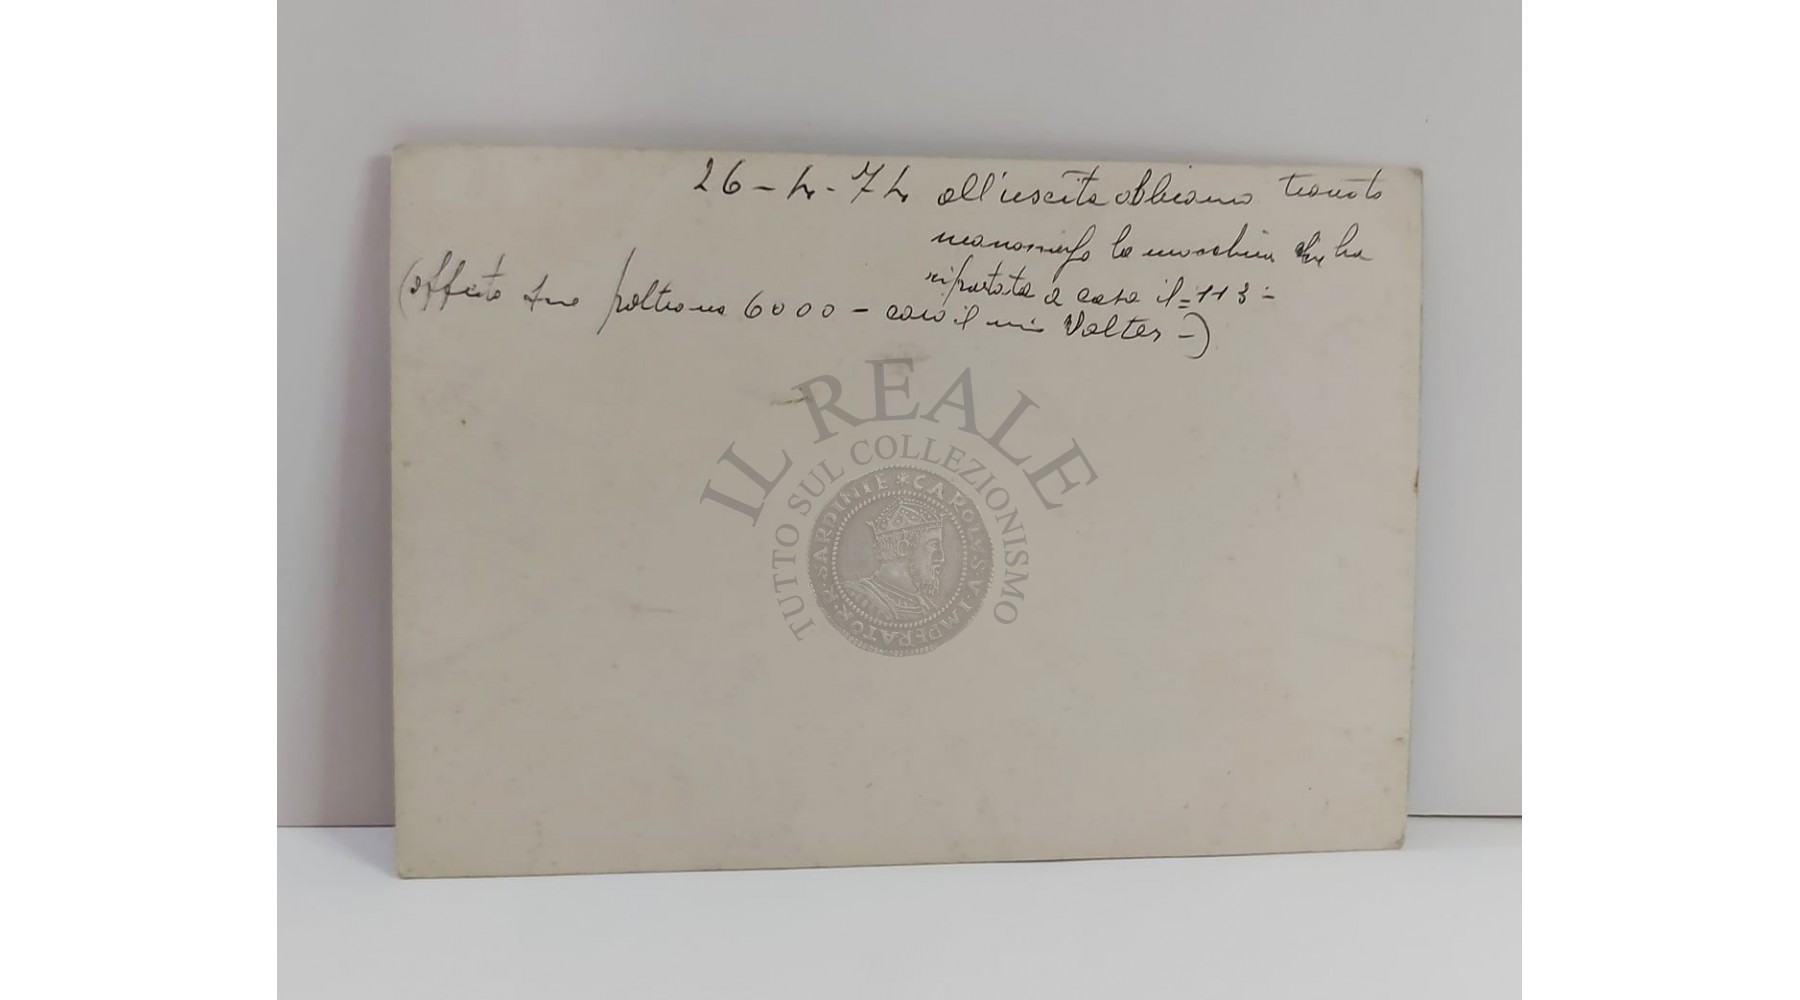 26-4-74 all'uscita abbiamo trovato
manomessa la macchina ha
riportata a casa il=113-
(offerto poltrona 6000 - caro il mio Valter -)
IL REALE
TUTTO SUL COLLEZIONISMO
SARDINIE * CAROLVS V IMPERATOR R